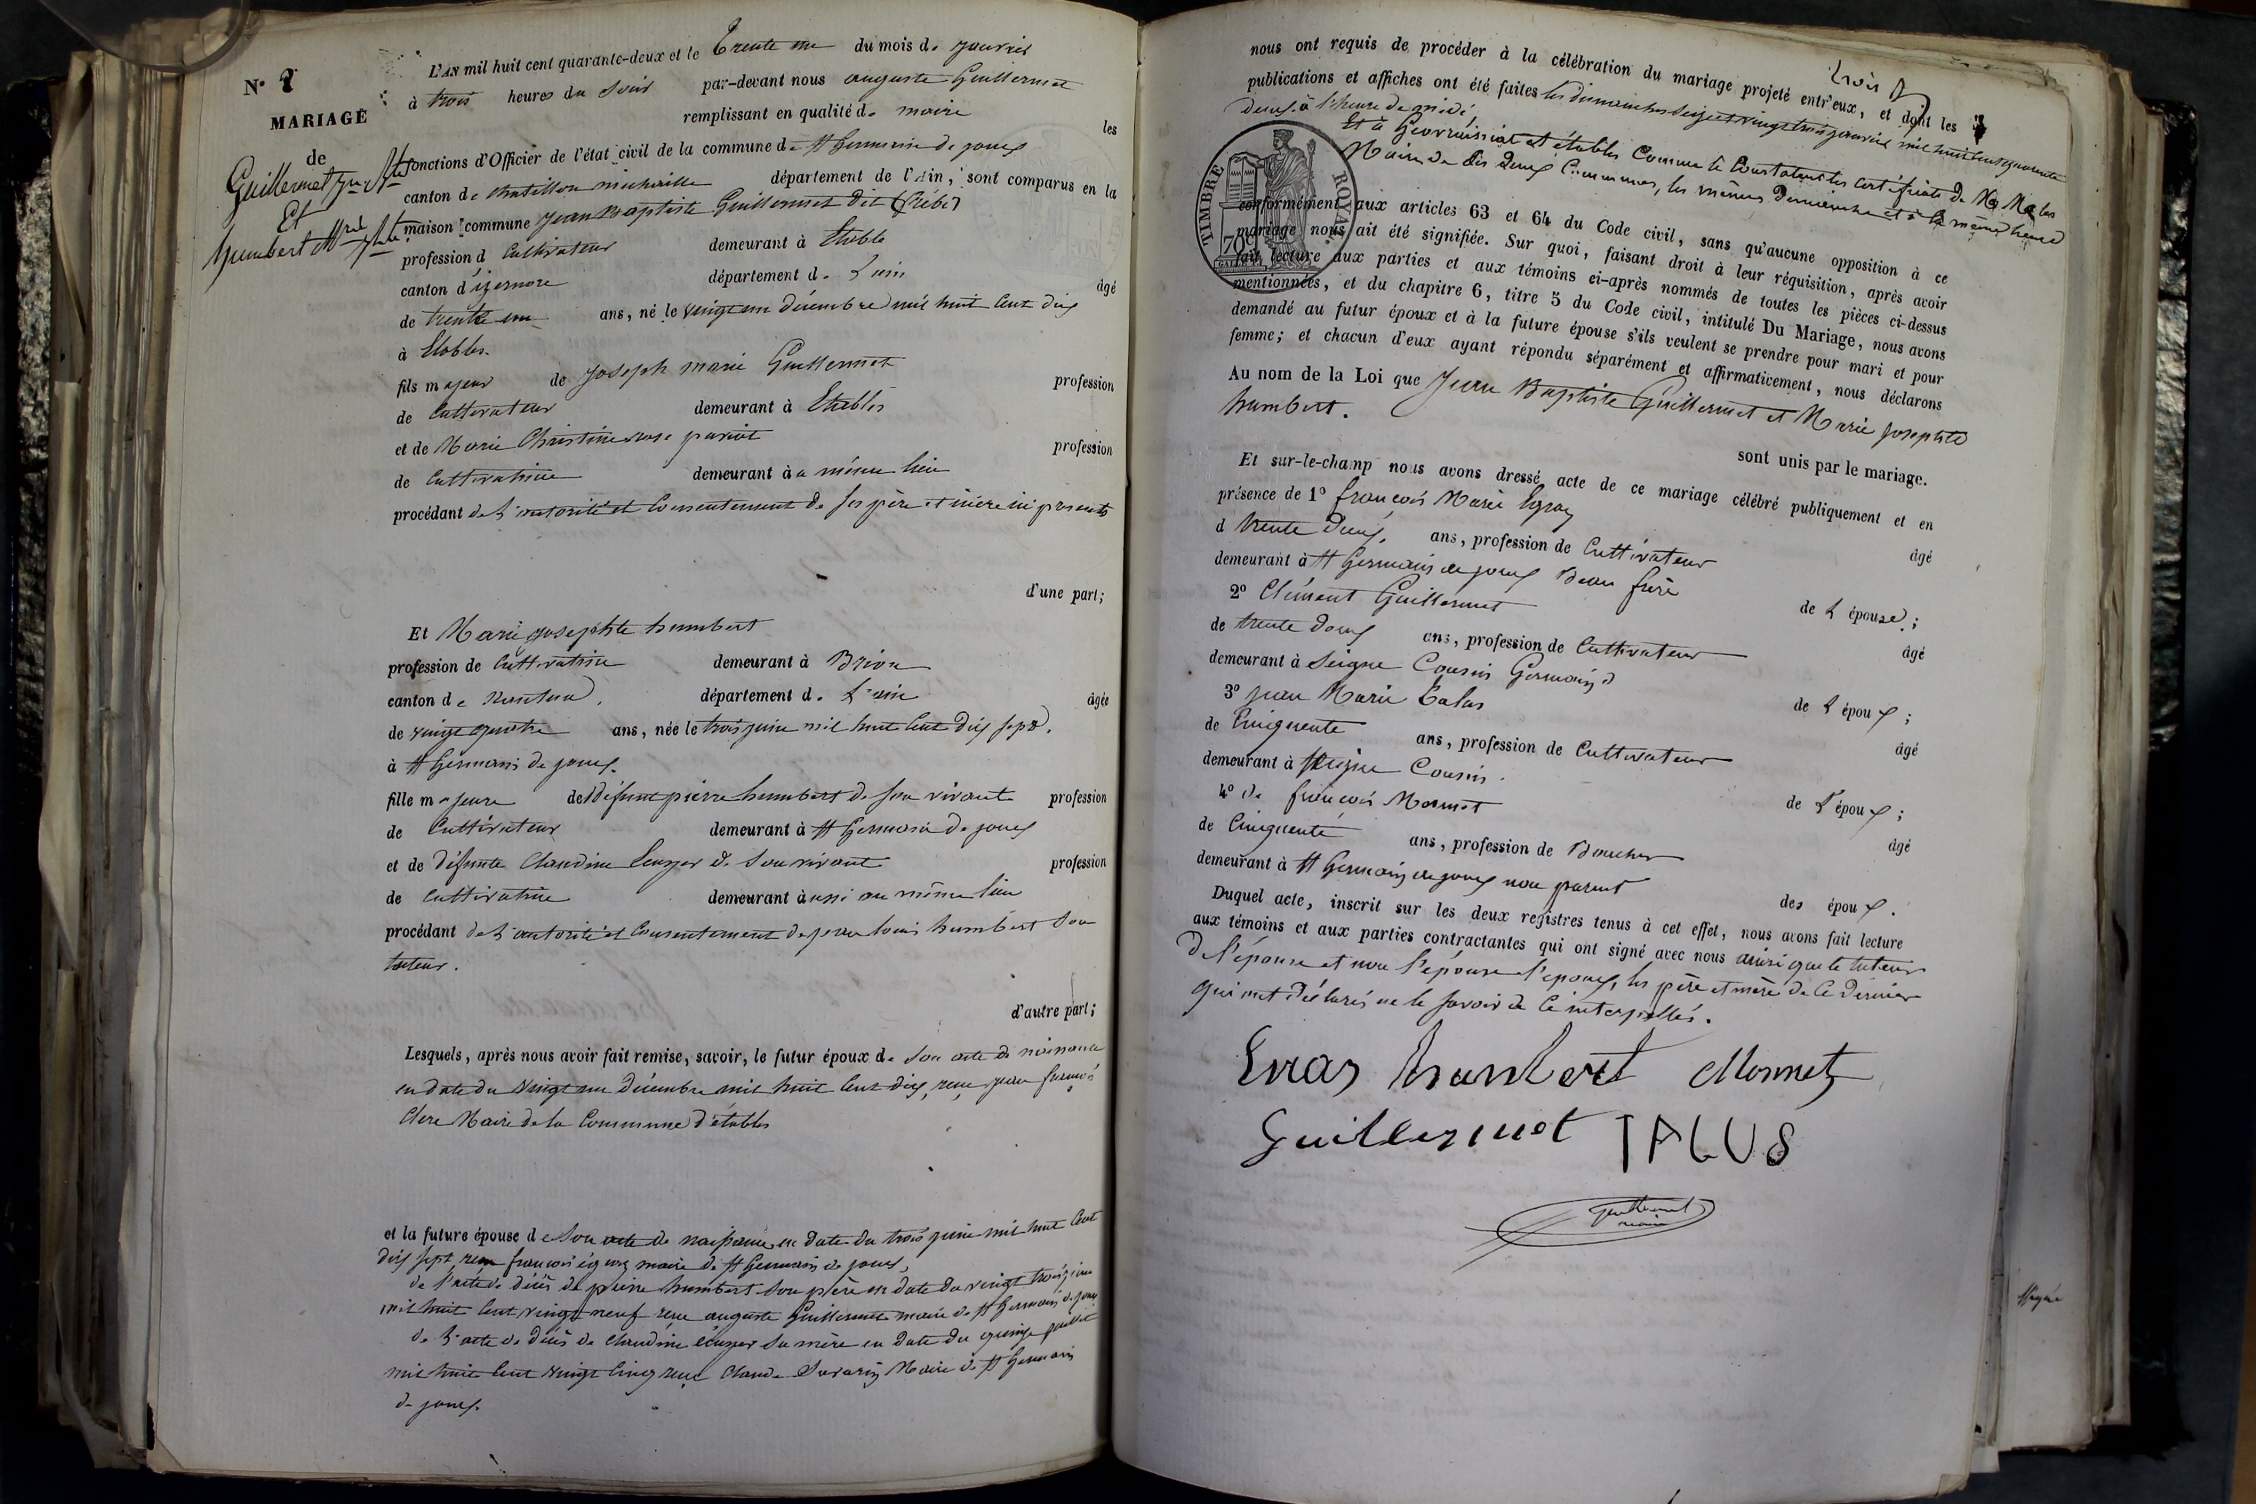 N° 2
MARIAGE
de
Guillermet Jn Bte
Et
humbert Mrie Jphte
L'AN mil huit cent quarante-deux et le Trente un du mois de janvier
à trois heures du soir par-devant nous auguste Guillermet
remplissant en qualité de maire les
fonctions d'Officier de l'état civil de la commune de St Germain de joux
canton de chatillon michaille département de l'Ain, sont comparus en la
maison commune jean Baptiste Guillermet dit
profession d cultivateur demeurant à Etable
canton d'izernore département de L'ain âgé
de trente un ans, né le vingt un décembre mil huit cent dix
à Etables.
fils majeur de joseph marie Guillermet profession
de cultivateur demeurant à Etables
et de Marie Christine rose pariat profession
de cultivatrice demeurant à u même lieu
procédant de l'autorité et consentement de ses père et mère ici présents
d'une part;
Et Marie josephte humbert
profession de cultivatrice demeurant à Brion
canton de Nantua. département de L'ain âgée
de vingt quatre ans, née le trois juin mil huit cent dix sept.
à St Germain de joux.
fille majeure de défunt pierre humbert de son vivant profession
de cultivateur demeurant à St Germain de joux
et de défunte Claudine de son vivant profession
de cultivatrice demeurant aussi au même lieu
procédant de l'autorité et consentement de jean louis humbert son
tuteur.
d'autre part;
Lesquels, après nous avoir fait remise, savoir, le futur époux de son acte de naissance
en date du vingt un décembre mil huit cent dix, reçu, jean françois
Clerc Maire de la Commune d'étables
et la future épouse de son acte de naissance en date du trois juin mil huit cent
dix sept reçu françois maire de St Germain de joux,
de l'acte de décès de pierre humbert son père en date du vingt trois juin
mil huit cent vingt neuf reçu auguste Guillermet maire de St Germain de joux
de l'acte de décès de claudine sa mère en date du quinze juillet
mil huit cent vingt cinq reçu claude Savarin Maire de St Germain
de joux.
nous ont requis de procéder à la célébration du mariage projeté entr'eux, et dont les trois
publications et affiches ont été faites les dimanches seize et vingt trois janvier mil huit cent quarante
deux à l'heure de midi
Et à Geovreissiat et étables Comme le Constatent les certificats de MM les
Maires de dis deux Communes, les mêmes Dimanche et à la même heure
TIMBRE ROYAL
70c
conformément aux articles 63 et 64 du Code civil, sans qu'aucune opposition à ce
mariage nous ait été signifiée. Sur quoi, faisant droit à leur réquisition, après avoir
fait lecture aux parties et aux témoins ci-après nommés de toutes les pièces ci-dessus
mentionnées, et du chapitre 6, titre 5 du Code civil, intitulé Du Mariage, nous avons
demandé au futur époux et à la future épouse s'ils veulent se prendre pour mari et pour
femme; et chacun d'eux ayant répondu séparément et affirmativement, nous déclarons
Au nom de la Loi que Jean Baptiste Guillermet et Marie josephte
humbert.
sont unis par le mariage.
Et sur-le-champ nous avons dressé acte de ce mariage célébré publiquement et en
présence de 1° françois Marie âgé
d trente deux, ans, profession de Cultivateur
demeurant à St Germain de joux Beau frère de L'épouse;
2° Clément Guillermet âgé
de trente deux ans, profession de Cultivateur
demeurant à Seigne Cousin Germain de L'époux;
3° jean Marie Talus âgé
de Cinquante ans, profession de Cultivateur
demeurant à Seigne Cousin. de L'époux;
4° de françois Monnet âgé
de Cinquante ans, profession de Boucher
demeurant à St Germain de joux non parent des époux.
Duquel acte, inscrit sur les deux registres tenus à cet effet, nous avons fait lecture
aux témoins et aux parties contractantes qui ont signé avec nous ainsi que le tuteur
de l'épouse et non l'épouse l'époux, les père et mère de ce dernier
qui ont déclarés ne le savoir de ce interpellés.
humbert Monnet
Guillermet TALUS
Guillermet
maire